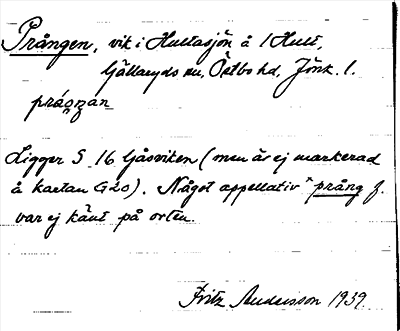 Prången, vik i Hultasjön å 1 Hult,
Gällaryds sn, Östbo hd, Jönk. l.
Ligger S 16 Gåsviken (men är ej markerad
å kartan G20). Något appellativ *prång f.
var ej känt på orten.
Fritz Andersson 1939